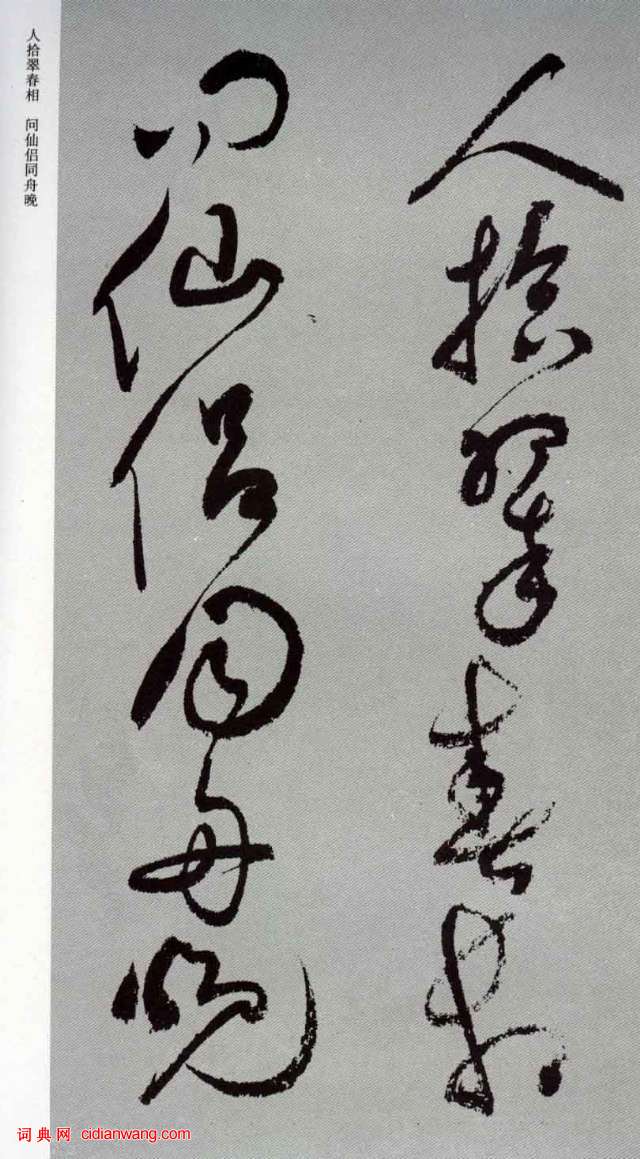 人拾翠春相
问仙侣同舟晚
人拾翠春相 问仙侣同舟晚
词典网 cidianwang.com